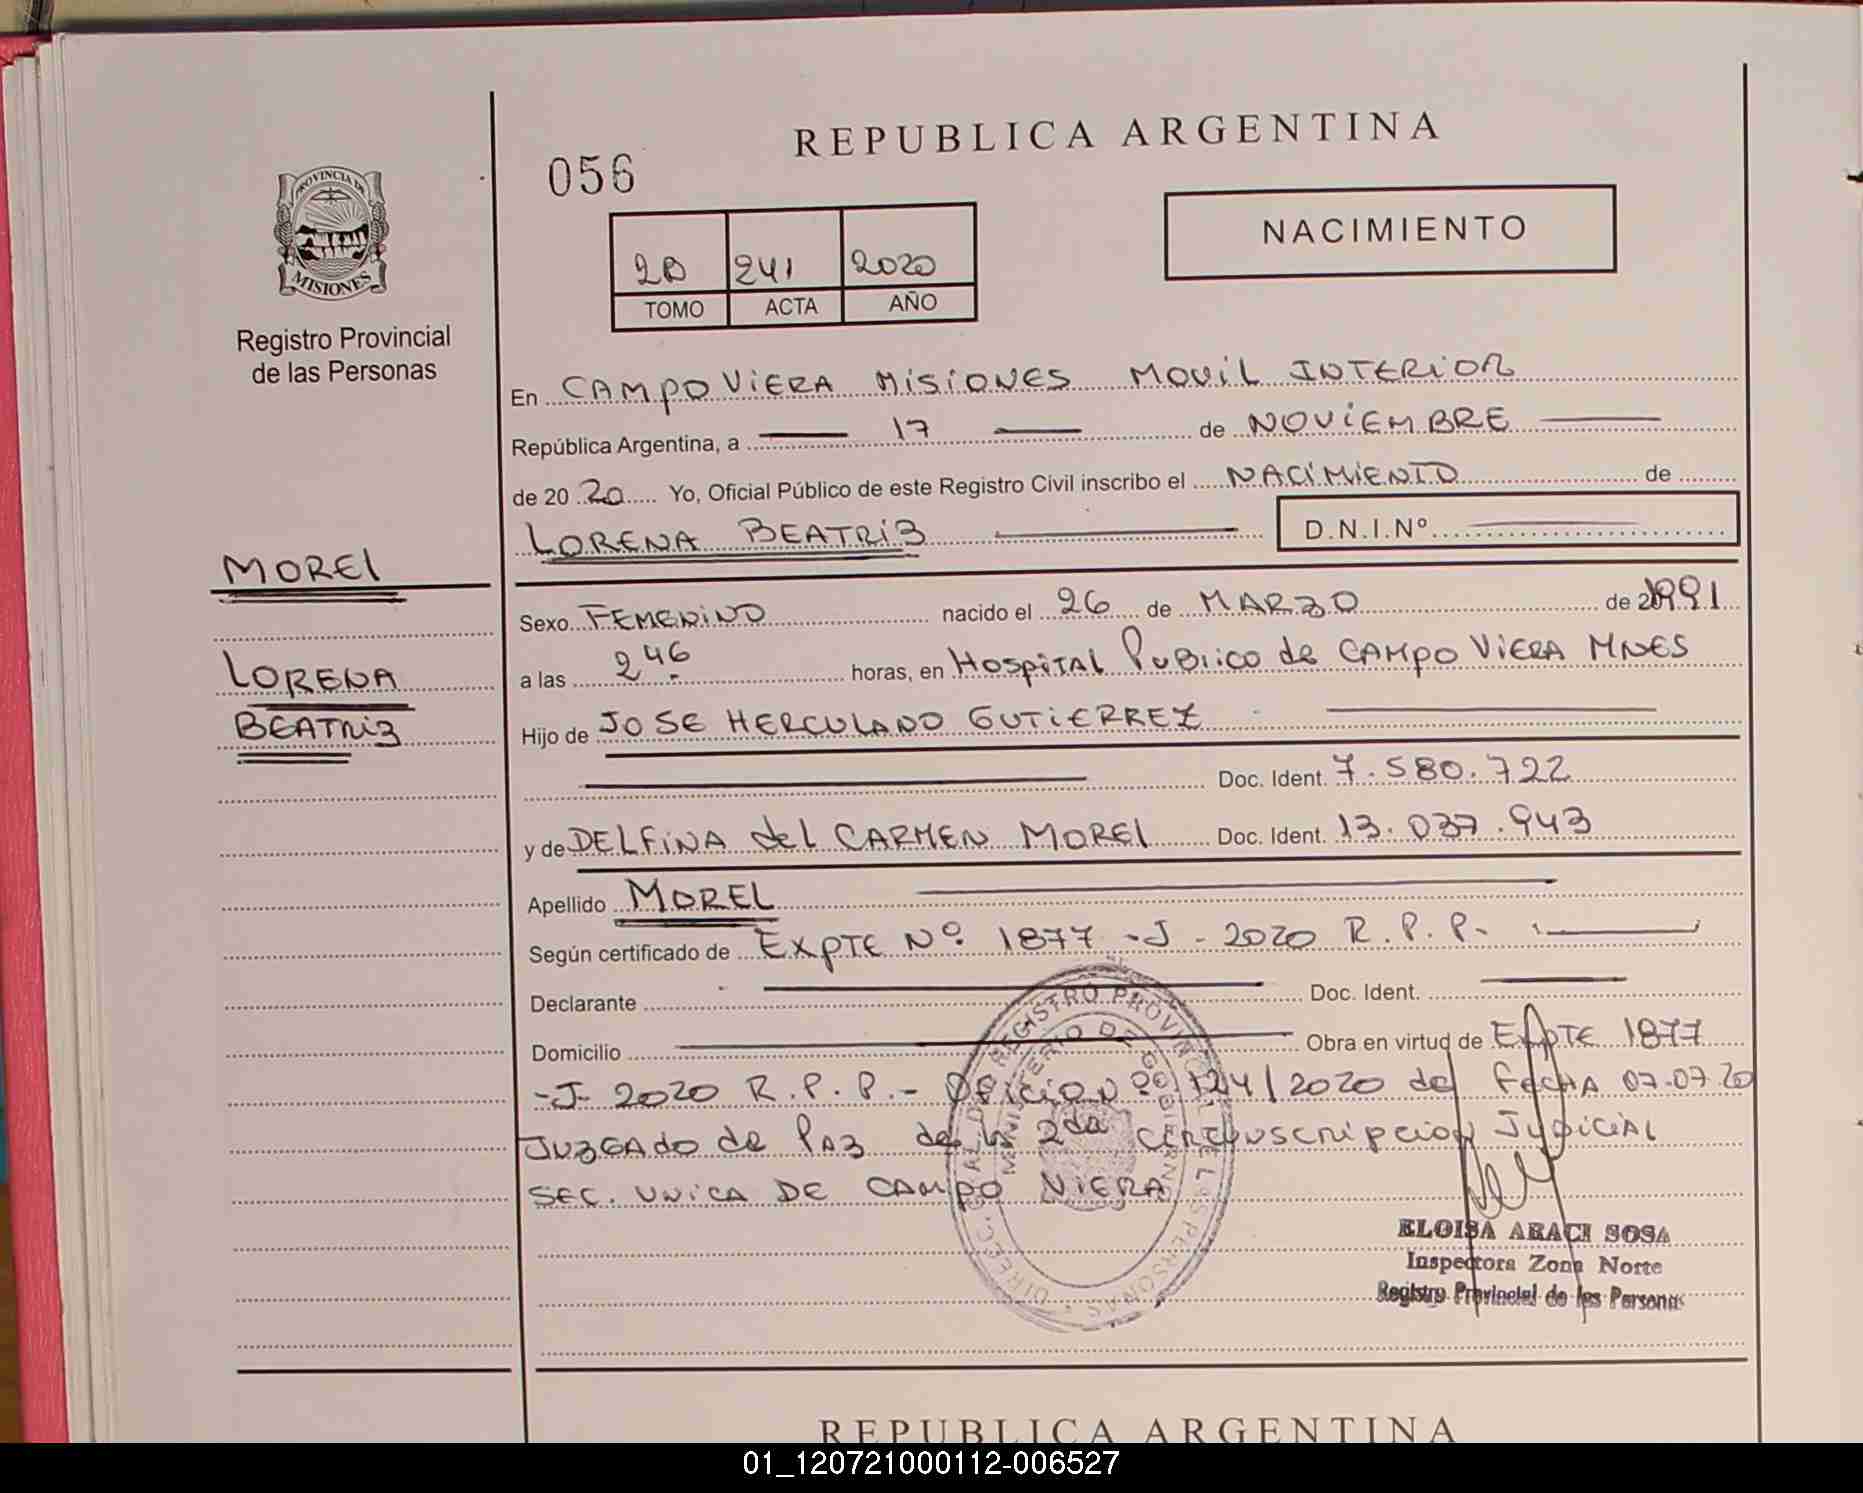 REPUBLICA ARGENTINA
056
NACIMIENTO
2B 241 2020
TOMO ACTA AÑO
PROVINCIA DE
MISIONES
Registro Provincial
de las Personas
En CAMPO VIERA MISIONES MOVIL INTERIOR
República Argentina, a 17 de NOVIEMBRE
de 20 20 Yo, Oficial Público de este Registro Civil inscribo el NACIMIENTO de
LORENA BEATRIZ D.N.I.Nº
MOREL
LORENA
BEATRIZ
Sexo FEMENINO nacido el 26 de MARZO de 1991
a las 2 46 horas, en HOSPITAL PUBLICO de CAMPO VIERA MNES
Hijo de JOSE HERCULANO GUTIERREZ
Doc. Ident. 7.580.722
y de DELFINA del CARMEN MOREL Doc. Ident. 13.037.943
Apellido MOREL
Según certificado de EXPTE Nº 1877 -J- 2020 R.P.P-
Declarante Doc. Ident.
Domicilio Obra en virtud de EXPTE 1877
-J- 2020 R.P.P.- OFICIO Nº 124/2020 de FECHA 07-07-20
JUZGADO de PAZ de la 2da CIRCUNSCRIPCION JUDICIAL
SEC. UNICA DE CAMPO VIERA
DIREC. GRAL DEL REGISTRO PROVINCIAL DE LAS PERSONAS
MINISTERIO DE GOBIERNO
ELOISA ARACI SOSA
Inspectora Zona Norte
Registro Provincial de las Personas
REPUBLICA ARGENTINA
01_120721000112-006527